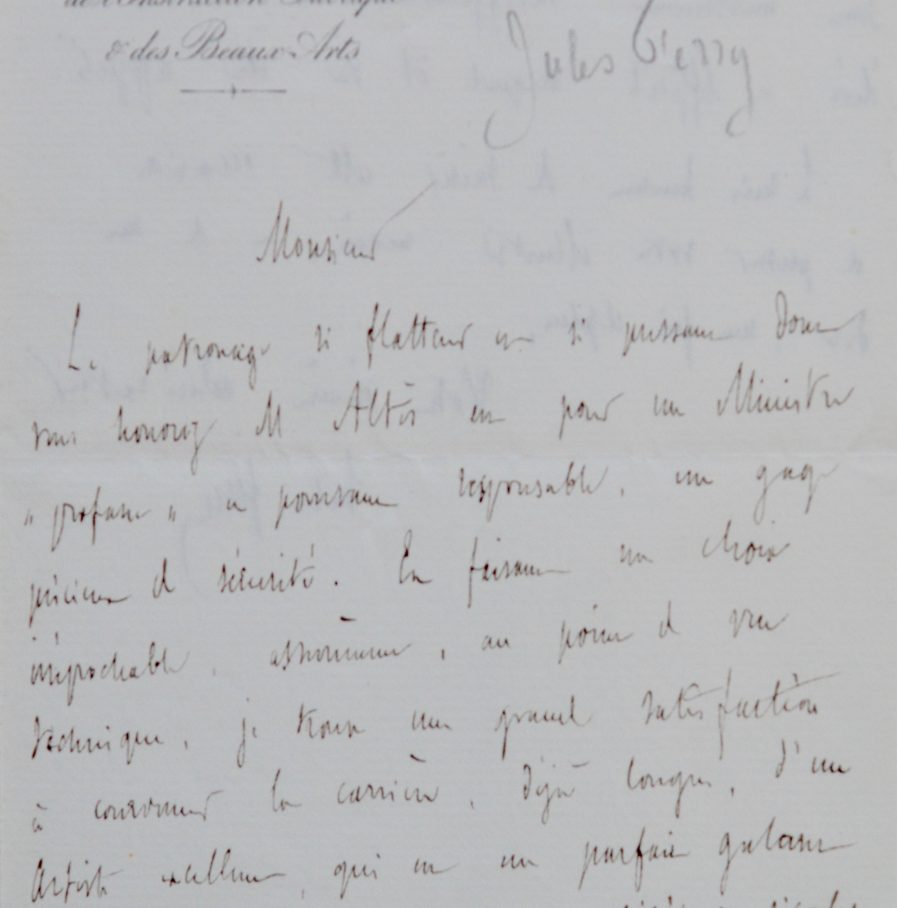 de l'Instruction Publique
& des Beaux-Arts
Jules Ferry
Monsieur
Le patronage si flatteur et si puissant dont
vous honorez M Altès est pour un Ministre
"profane" et pourtant responsable, un gage
précieux de sécurité. En faisant un choix
irréprochable, assurément, au point de vue
technique, je trouve une grande satisfaction
à couronner la carrière, déjà longue, d'un
Artiste excellent, qui est un parfait galant